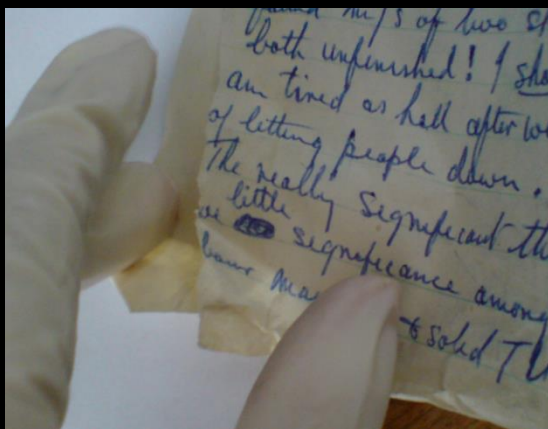 found m/s of two
both unfinished! I
am tired as hell after
of letting people down.
The really significant
little
significance among
& solid